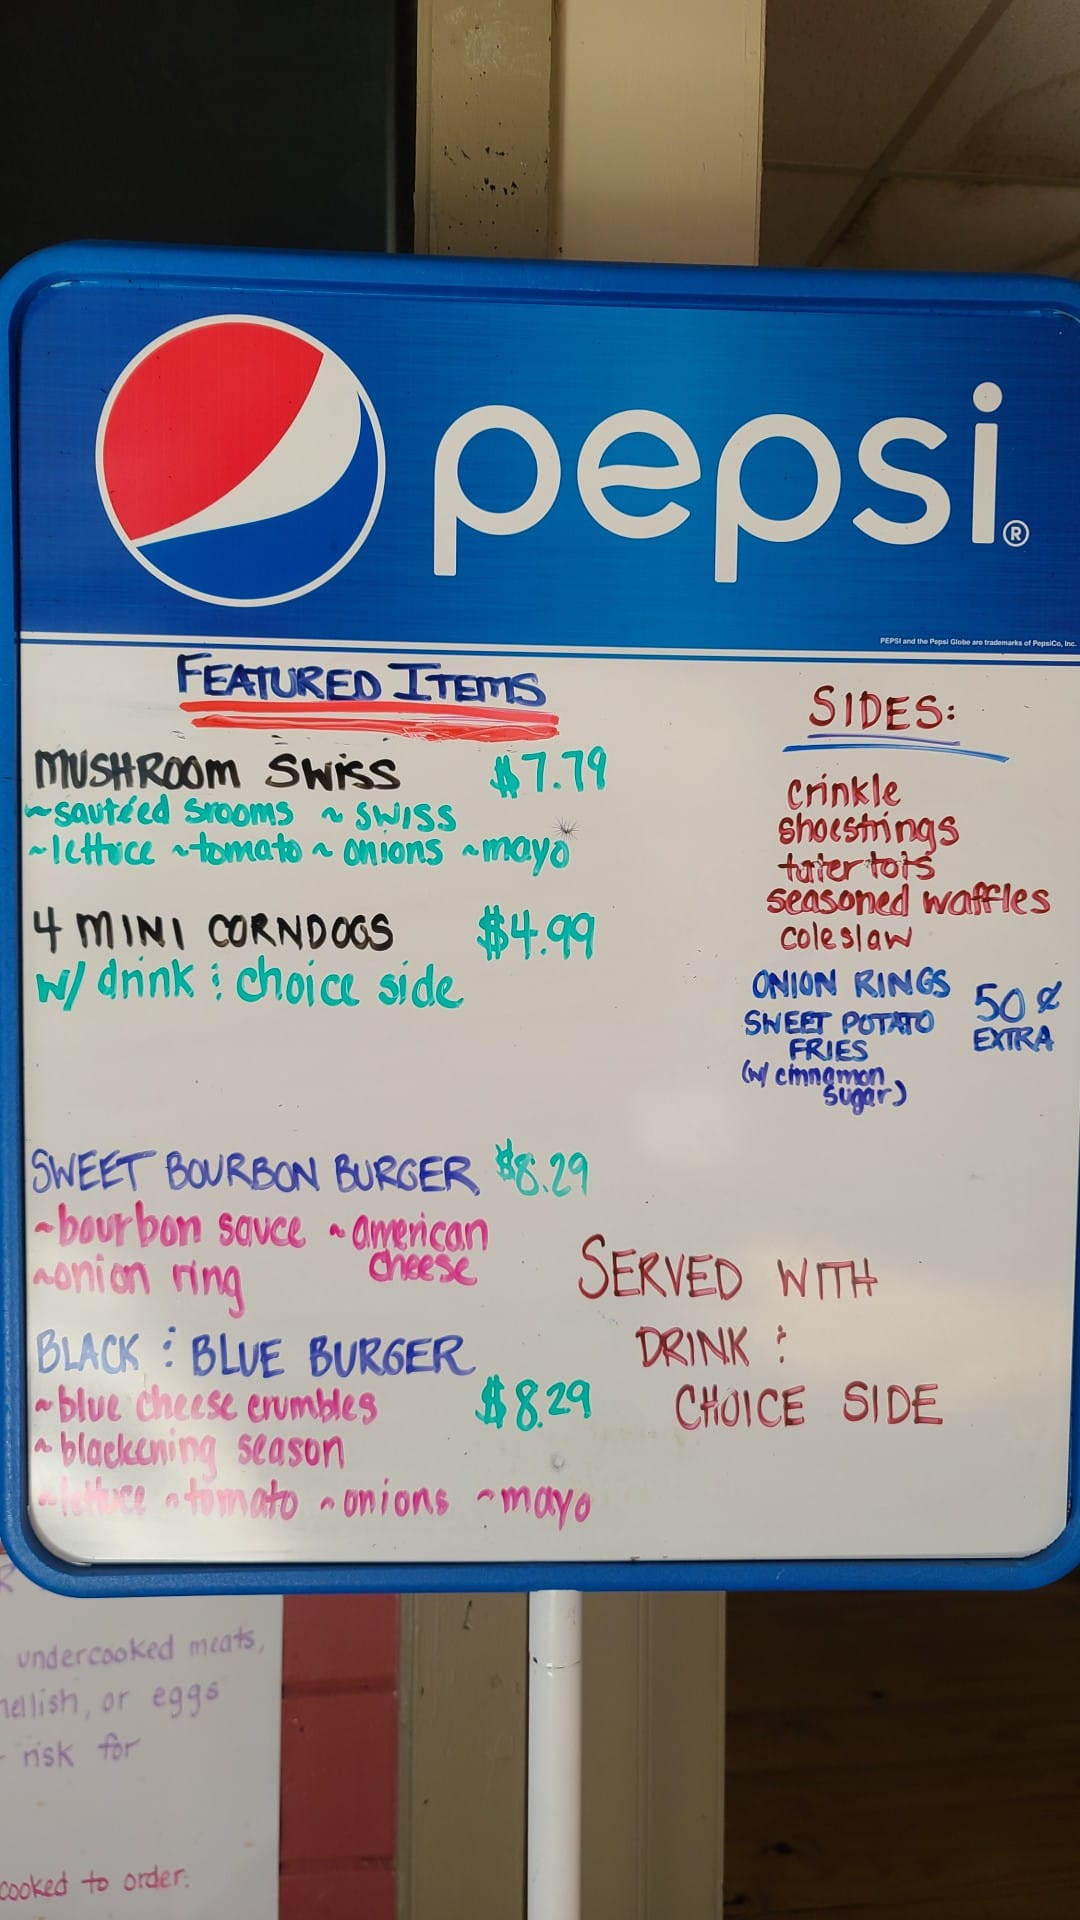 pepsi®
PEPSI and the Pepsi Globe are trademarks of PepsiCo, Inc.
FEATURED ITEMS
MUSHROOM SWISS $7.79
~sautéed srooms ~ SWISS
~lettuce ~tomato ~ onions ~mayo
4 MINI CORNDOGS $4.99
w/ drink & choice side
SWEET BOURBON BURGER $8.29
~bourbon sauce ~american
cheese
~onion ring
BLACK & BLUE BURGER
~blue cheese crumbles $8.29
~blackening season
~lettuce ~tomato ~onions ~mayo
SIDES:
crinkle
shoestrings
tater tots
seasoned waffles
coleslaw
ONION RINGS
SWEET POTATO
FRIES
(w/ cinnamon
sugar)
50¢
EXTRA
SERVED WITH
DRINK &
CHOICE SIDE
undercooked meats,
or eggs
risk for
cooked to order.